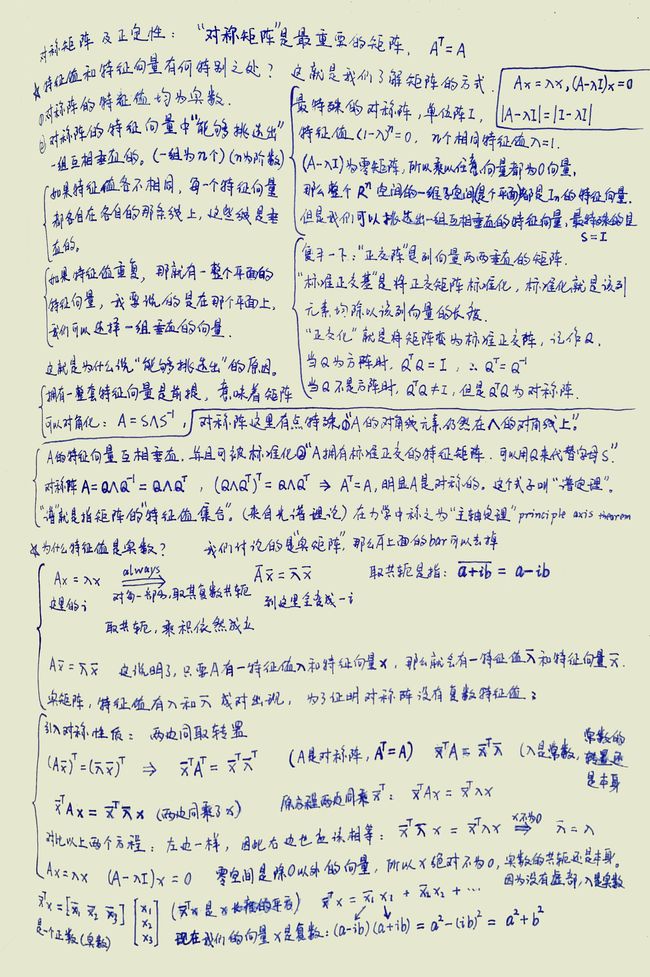 对称矩阵及正定性：“对称矩阵”是最重要的矩阵，Aᵀ=A
☆特征值和特征向量有何特别之处？这就是我们了解矩阵的方式.
Ax=λx, (A-λI)x=0
|A-λI|=|I-λI|
①对称阵的特征值均为实数.
②对称阵的特征向量中“能够挑选出”
一组互相垂直的。(一组为n个)(n为阶数)
如果特征值各不相同，每一个特征向量
都各自在各自的那条线上，这些线是垂
直的。
如果特征值重复，那就有一整个平面的
特征向量，我要做的是在那个平面上，
我们可以选择一组垂直的向量.
这就是为什么说“能够挑选出”的原因。
最特殊的对称阵，单位阵I，
特征值(1-λ)ⁿ=0, n个相同特征值λ=1.
(A-λI)为零矩阵，所以乘以任意向量都为0向量，
那么整个Rⁿ空间的一维子空间(是个平面)都是Iₙ的特征向量.
但是我们可以挑选出一组互相垂直的特征向量，最特殊的是
S=I
复习一下：“正交阵”是列向量两两垂直的矩阵.
“标准正交基”是将正交矩阵标准化，标准化就是该列
元素均除以该列向量的长度.
“正交化”就是将矩阵变为标准正交阵，记作Q.
当Q为方阵时，QᵀQ=I, ∴Qᵀ=Q⁻¹
当Q不是方阵时，QᵀQ≠I, 但是QᵀQ为对称阵.
拥有一整套特征向量是前提，意味着矩阵
可以对角化：A=SΛS⁻¹, 对称阵这里有点特殊①“A的对角线元素仍然在Λ的对角线上”.
A的特征向量互相垂直.并且可被标准化②“A拥有标准正交的特征矩阵.可以用Q来代替字母S”.
对称阵A=QΛQ⁻¹=QΛQᵀ, (QΛQᵀ)ᵀ=QΛQᵀ ⇒ Aᵀ=A, 明显A是对称的。这个式子叫“谱定理”.
“谱”就是指矩阵的“特征值集合”。(来自光谱理论)在力学中称之为“主轴定理”principle axis theorem
☆为什么特征值是实数？ 我们讨论的是“实矩阵”，那么A上面的bar可以去掉
Ax=λx always⇒ A̅x̅=λ̅x̅ 取共轭是指：a+ib̅=a-ib
这里的i 对每一部分,取其复数共轭 到这里全变成-i
取共轭，乘积依然成立
Ax̅=λ̅x̅ 这说明了,只要A有一特征值λ和特征向量x, 那么就会有一特征值λ̅和特征向量x̅.
实矩阵，特征值有λ和λ̅成对出现，为了证明对称阵没有复数特征值：
引入对称性质：两边同取转置
(Ax̅)ᵀ=(λ̅x̅)ᵀ ⇒ x̅ᵀAᵀ=x̅ᵀλ̅ᵀ (A是对称阵, Aᵀ=A) x̅ᵀA=x̅ᵀλ̅ (λ是常数, 常数的转置还是本身
x̅ᵀAx=x̅ᵀλ̅x (两边同乘了x) 原方程两边同乘x̅ᵀ: x̅ᵀAx=x̅ᵀλx
对比以上两个方程：左边一样，因此右边也应该相等：x̅ᵀλ̅x=x̅ᵀλx x不为0⇒ λ̅=λ
Ax=λx (A-λI)x=0 零空间是除0以外的向量，所以x绝对不为0, 实数的共轭还是本身。
因为没有虚部, λ是实数
x̅ᵀx=[x̅₁ x̅₂ x̅₃][x₁ x₂ x₃] (x̅ᵀx是x长度的平方) x̅ᵀx=x̅₁x₁+x̅₂x₂+⋯
是一个正数(实数) 现在我们的向量x是复数：(a-ib)(a+ib)=a²-(ib)²=a²+b²